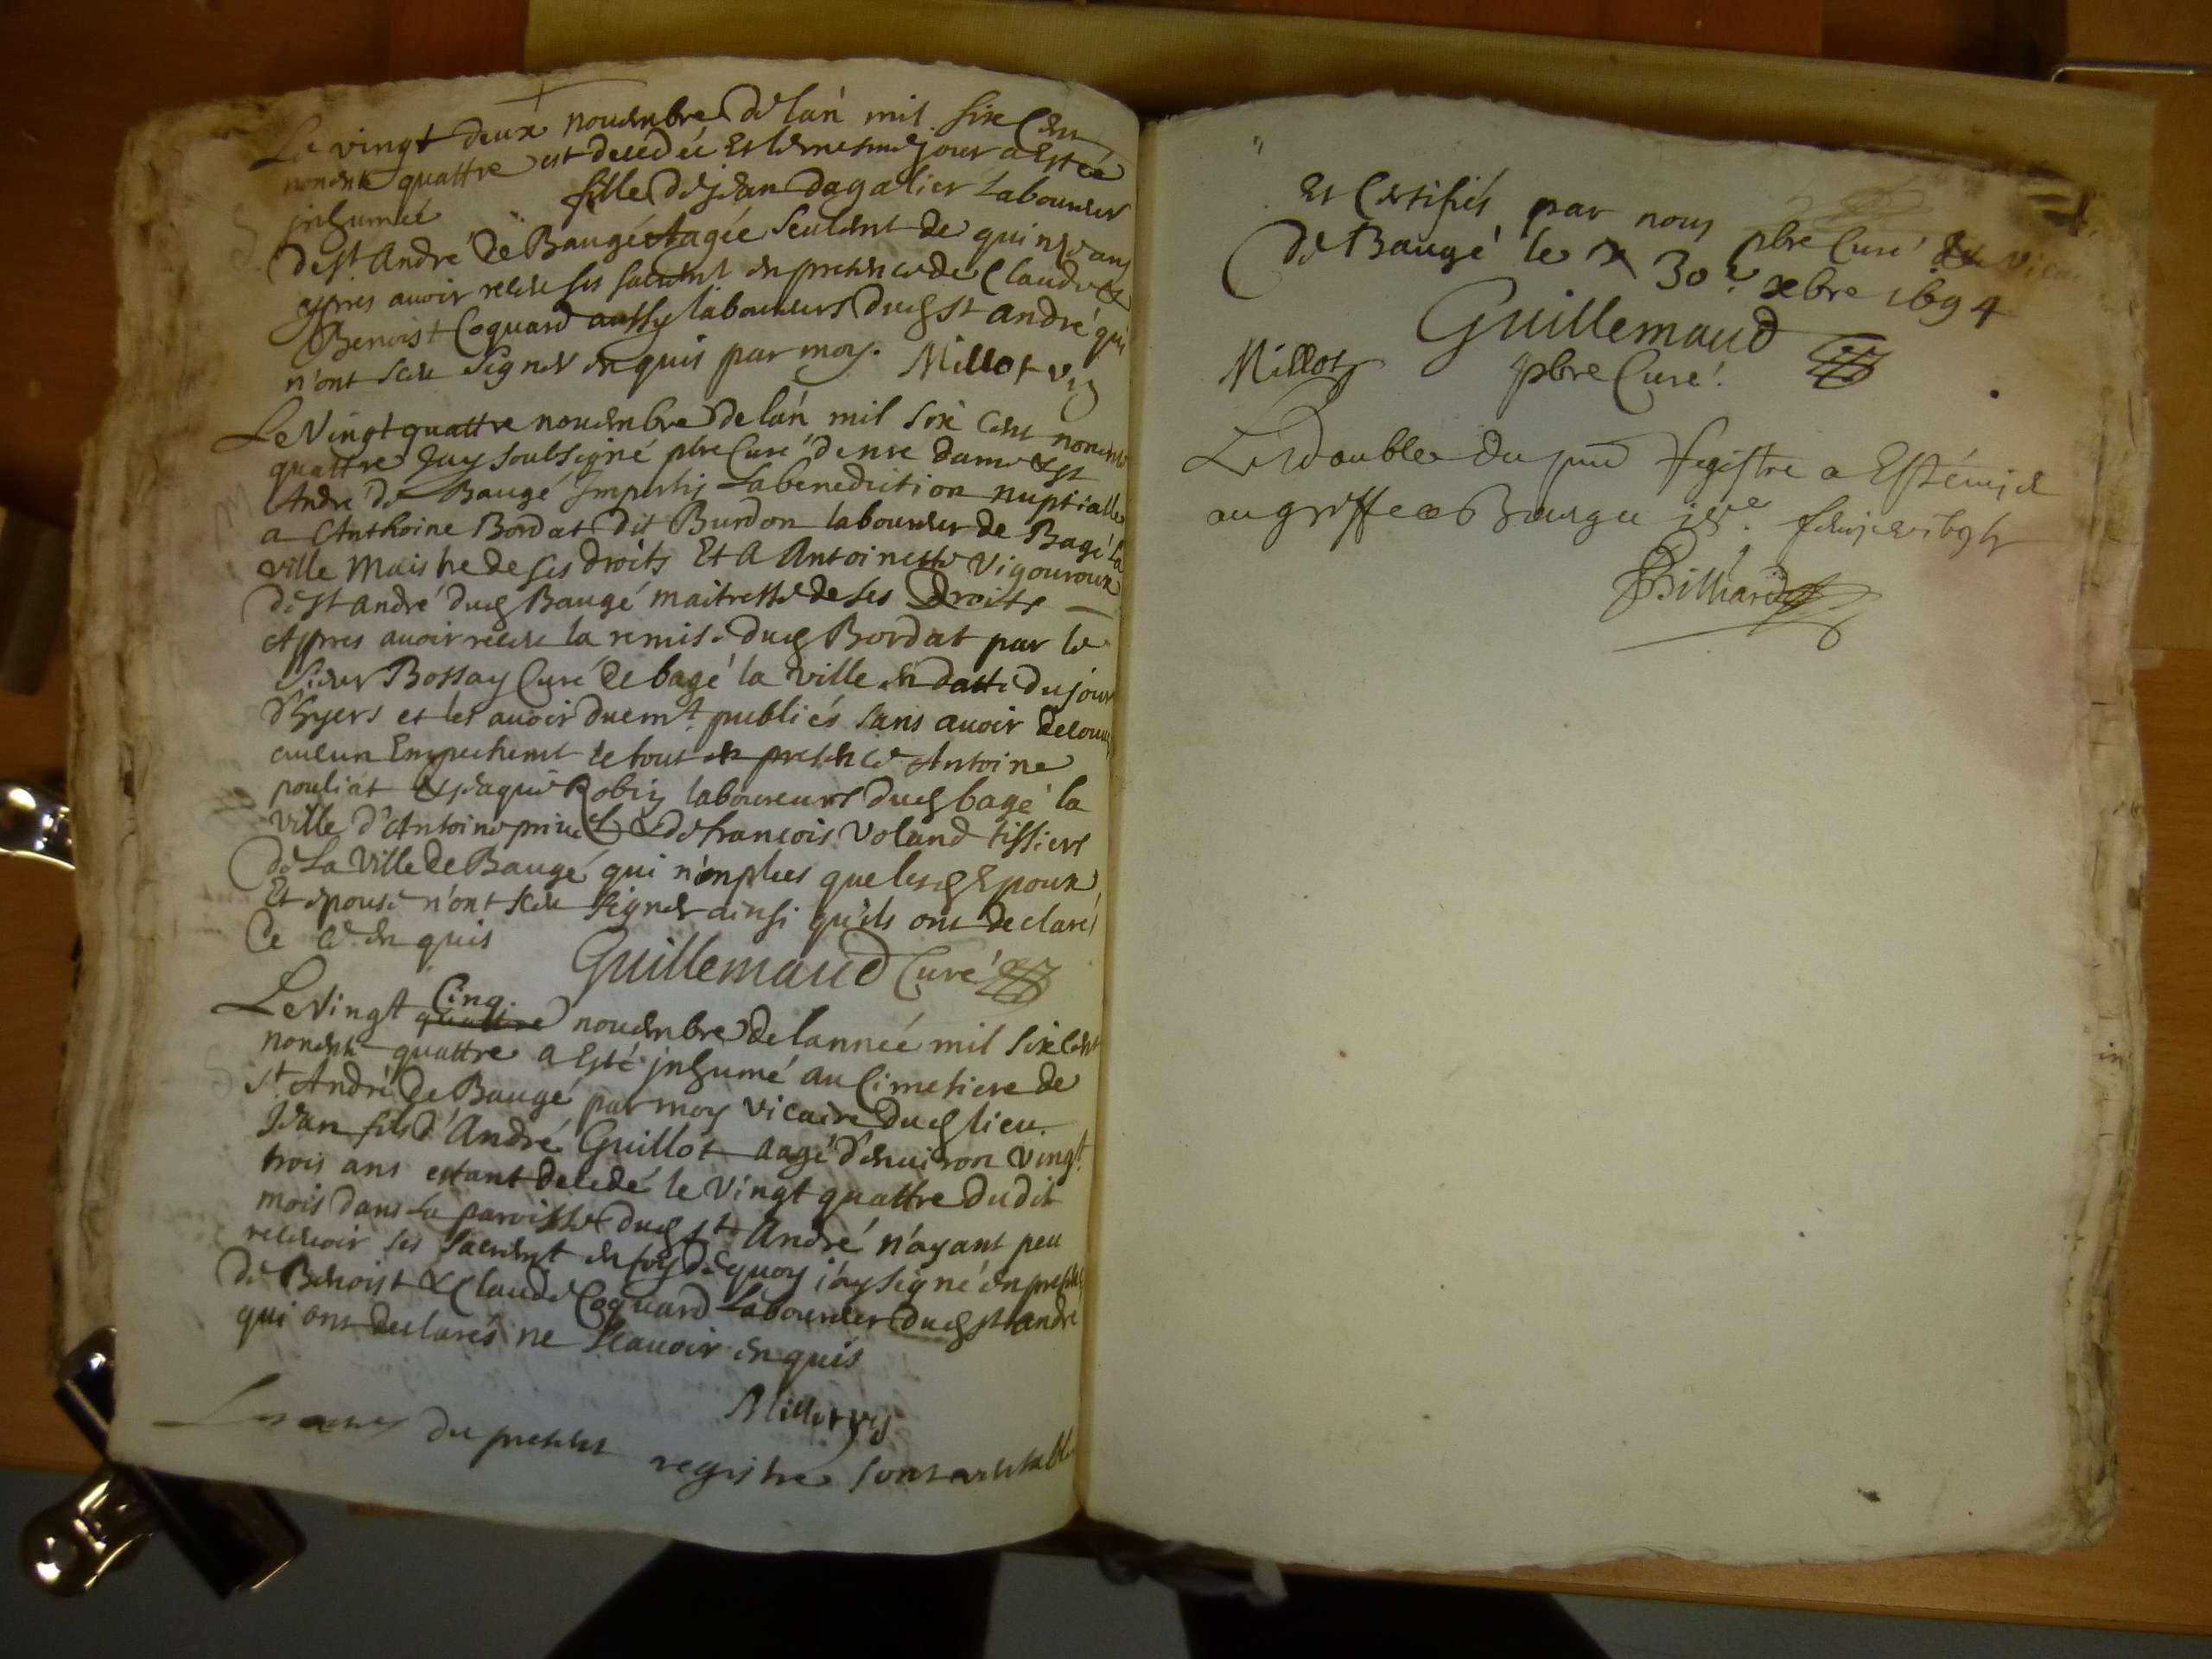 Le vingt deux nouembre de lan mil six Cent
nonente quattre est decedeé et le mesme jour a esteé
jnhumeé fille de jean dagalier Laboureur
de st André de Baugé Aagée seulemt de quinze ans
appres auoir receu ses sacremt en presence de Claude &
Benoist Coquard aussy laboureurs dud st andré qui
n'ont sceu signer enquis par moy. Millot vic
Le Vingt quattre nouembre de lan mil six Cent nonente
quattre Jay soubsigné pbre Curé de nre dame & st
André de Baugé Imparty La benediction nuptialle
a Anthoine Bordat dit Burdon laboureur de Bagé la
ville Maistre de ses droits Et A Antoinette Vigouroux
de st André dud Baugé maitresse de ses Droits
Appres auoir receu la remise dud Bordat par le
sieur Bossay Curé de bagé la ville en datte du jour
d'hyers et les auoir duemt publiés sans auoir
aucun Empechemt le tout en presence Antoine
pouliat & jaque Robin laboureurs dud bagé la
ville d'Antoine & de francois Voland tissiers
de La Ville de Baugé qui n'on plus que lesd Epoux
Et epouse n'ont sceu signer ainsi qu'ils ont declaré
de ce enquis Guillemaud Curé
Le Vingt Cinq quattre nouembre de lanneé mil six Cent
nonente quattre a Esté jnhumé au Cimetiere de
st André de Baugé par moy vicaire dud lieu
Jean fils d'André Guillot Aagé d'enuiron vingt
trois ans estant decedé le Vingt quattre dudit
mois dans la paroisse dud st André n'ayant peu
receuoir ses sacremt en foy de quoy j'ay signé en presence
de Benoist & Claude Coquard Laboureur dud st André
qui ont declarés ne scauoir enquis
Millot vic
Les actes du present registre sont veritables
Et Certifiés par nous pbre Curé & vicaire
de Baugé le 30e xbre 1694
Guillemaud
Millot pbre Curé
Le double du pnt registre a Esté mis
au greffe a Bourg ce
Billiard